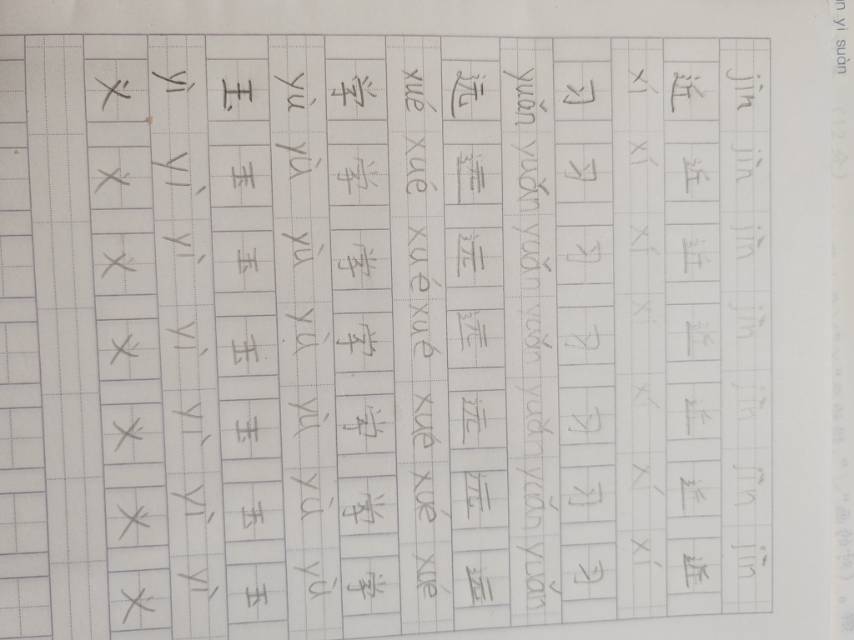 yi suàn
jìn jìn jìn jìn jìn jìn jìn
近 近 近 近 近 近 近
xí xí xí xí xí xí xí
习 习 习 习 习 习 习
yuǎn yuǎn yuǎn yuǎn yuǎn yuǎn yuǎn
远 远 远 远 远 远 远
xué xué xué xué xué xué xué
学 学 学 学 学 学 学
yù yù yù yù yù yù yù
玉 玉 玉 玉 玉 玉 玉
yì yì yì yì yì yì yì
义 义 义 义 义 义 义